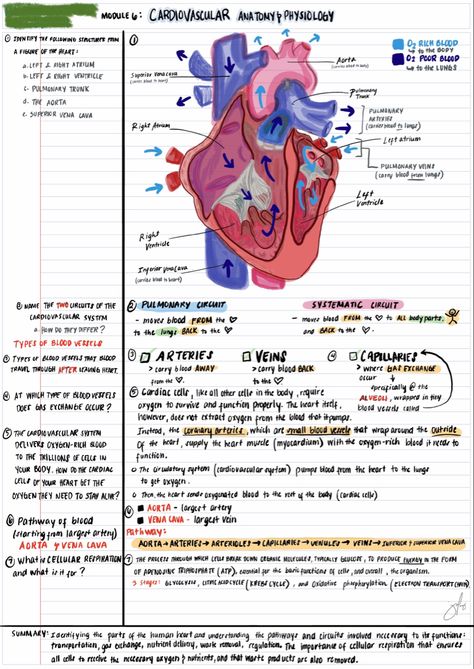 MODULE 6: CARDIOVASCULAR ANATOMY & PHYSIOLOGY
① IDENTIFY THE FOLLOWING STRUCTURES FROM
A FIGURE OF THE HEART:
a. LEFT & RIGHT ATRIUM
b. LEFT & RIGHT VENTRICLE
c. PULMONARY TRUNK
d. THE AORTA
e. SUPERIOR VENA CAVA
①
O₂ RICH BLOOD
↳ to the BODY
O₂ POOR BLOOD
↳ to the LUNGS
Aorta
Superior vena cava
(carries blood to heart)
Pulmonary
Trunk
PULMONARY
ARTERIES
(carries blood to lungs)
Right Atrium
Left atrium
PULMONARY VEINS
(carry blood from lungs)
Left
Ventricle
Right
Ventricle
Inferior vena cava
(carries blood to heart)
② NAME THE TWO CIRCUITS OF THE
CARDIOVASCULAR SYSTEM
a. HOW DO THEY DIFFER?
TYPES OF BLOOD VESSELS
② PULMONARY CIRCUIT
- moves blood FROM the ♡
to the lungs BACK to the ♡
SYSTEMATIC CIRCUIT
- moves blood FROM the ♡ to ALL body parts,
and BACK to the ♡.
③ TYPES OF BLOOD VESSELS THAT BLOOD
TRAVEL THROUGH AFTER LEAVING HEART.
④ AT WHICH TYPE OF BLOOD VESSELS
DOES GAS EXCHANGE OCCUR?
③ ARTERIES
> carry blood AWAY
from the ♡.
VEINS
> carry blood BACK
to the ♡.
④ CAPILLARIES
> where GAS EXCHANGE
occur
↳ specifically @ the
ALVEOLI, wrapped in tiny
blood vessels called
⑤ THE CARDIOVASCULAR SYSTEM
DELIVERS OXYGEN-RICH BLOOD
TO THE TRILLIONS OF CELLS IN
YOUR BODY. HOW DO THE CARDIAC
CELLS OF YOUR HEART GET THE
OXYGEN THEY NEED TO STAY ALIVE?
⑤ Cardiac cells, like all other cells in the body, require
oxygen to survive and function properly. The heart itself,
however, does not extract oxygen from the blood that it pumps.
Instead, the coronary arteries, which are small blood vessels that wrap around the outside
of the heart, supply the heart muscle (myocardium) with the oxygen-rich blood it needs to
function.
The circulatory system (cardiovascular system) pumps blood from the heart to the lungs
to get oxygen.
Then, the heart sends oxygenated blood to the rest of the body (cardiac cells)
⑥ Pathway of blood
(starting from largest artery)
AORTA & VENA CAVA
⑥ AORTA - largest artery
VENA CAVA - largest vein
Pathway:
AORTA → ARTERIES → ARTERIOLES → CAPILLARIES → VENULES → VEINS → INFERIOR & SUPERIOR VENA CAVA
⑦ WHAT IS CELLULAR RESPIRATION
and what is it for?
⑦ THE PROCESS THROUGH WHICH CELLS BREAK DOWN ORGANIC MOLECULES, TYPICALLY GLUCOSE, TO PRODUCE ENERGY IN THE FORM
OF ADENOSINE TRIPHOSPHATE (ATP), essential for the basic functions of cells, and overall, the organism.
3 stages: GLYCOLYSIS, CITRIC ACID CYCLE (KREBS CYCLE), and oxidative phosphorylation (ELECTRON TRANSPORT CHAIN)
SUMMARY: Identifying the parts of the human heart and understanding the pathways and circuits involved necessary to its functions:
transportation, gas exchange, nutrient delivery, waste removal, regulation. The importance of cellular respiration that ensures
all cells to receive the necessary oxygen & nutrients, and that waste products are also removed.